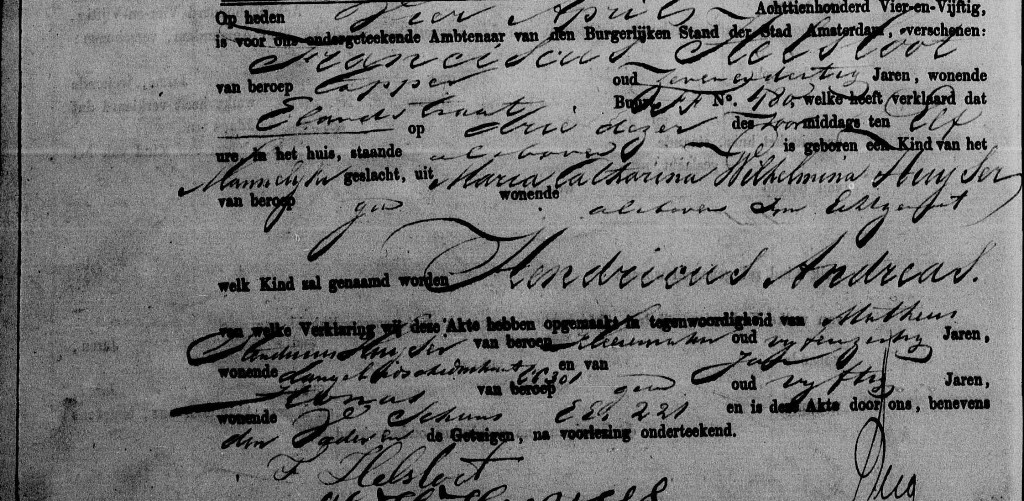 Op heden Vier April Achttienhonderd Vier-en-Vijftig,
is voor ons ondergeteekende Ambtenaar van den Burgerlijken Stand der Stad Amsterdam, verschenen:
Franciscus Helsloot
van beroep tapper oud zevenendertig Jaren, wonende
Elandstraat Buurt No. 480 welke heeft verklaard dat
op drie dezer des voormiddags ten Elf
ure in het huis, staande alsboven is geboren een Kind van het
Mannelijk geslacht, uit Maria Catharina Wilhelmina Huijser
van beroep geen wonende alsboven
welk Kind zal genaamd worden Hendricus Andreas.
van welke Verklaring wij deze Akte hebben opgemaakt in tegenwoordigheid van Matheus
Huijser van beroep oud Jaren,
wonende en van Jan
van beroep geen oud vijftig Jaren,
wonende 221 en is deze Akte door ons, benevens
den Vader en de Getuigen, na voorlezing onderteekend.
F Helsloot